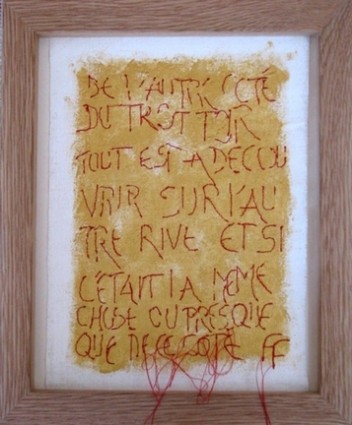 DE L'AUTRE CÔTÉ
DU TROTTOIR
TOUT EST A DECOU
VRIR SUR L'AU
TRE RIVE ET SI
C'ÉTAIT LA MEME
CHOSE OU PRESQUE
QUE DE CE COTÉ FF